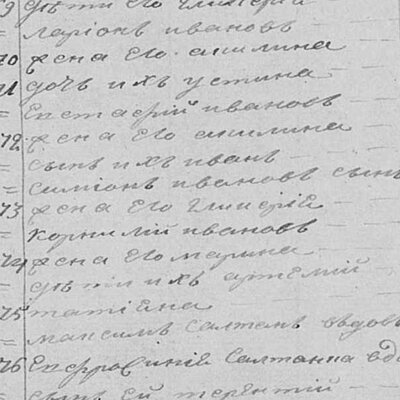 9 дѣти его Глигорій
= Ларіонъ Ивановъ
70 жена его Акилина
71 дочь ихъ Устина
= Евстафій Ивановъ —
72 жена его Акилина
= сынъ ихъ Иванъ —
= Симіонъ Ивановъ сынъ
73 жена его
= Корнилій Ивановъ
74 жена его Марина
= дѣти ихъ Артемій
75 Татіена
= Максимъ Салтанъ вдовъ
76 Ефросиніе Салтанка вдо
= сынъ ей Терентій —